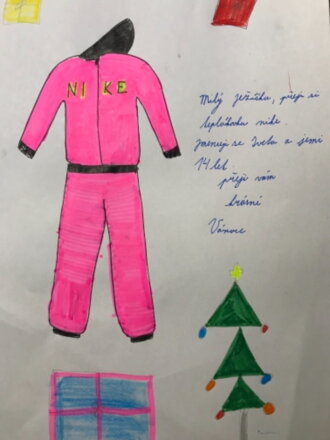 NIKE
Milý Ježíšku, přeji si
teplákovku nike.
Jmenuji se Iveta a jsem
14 let.
přeji vám
krásné
Vánoce